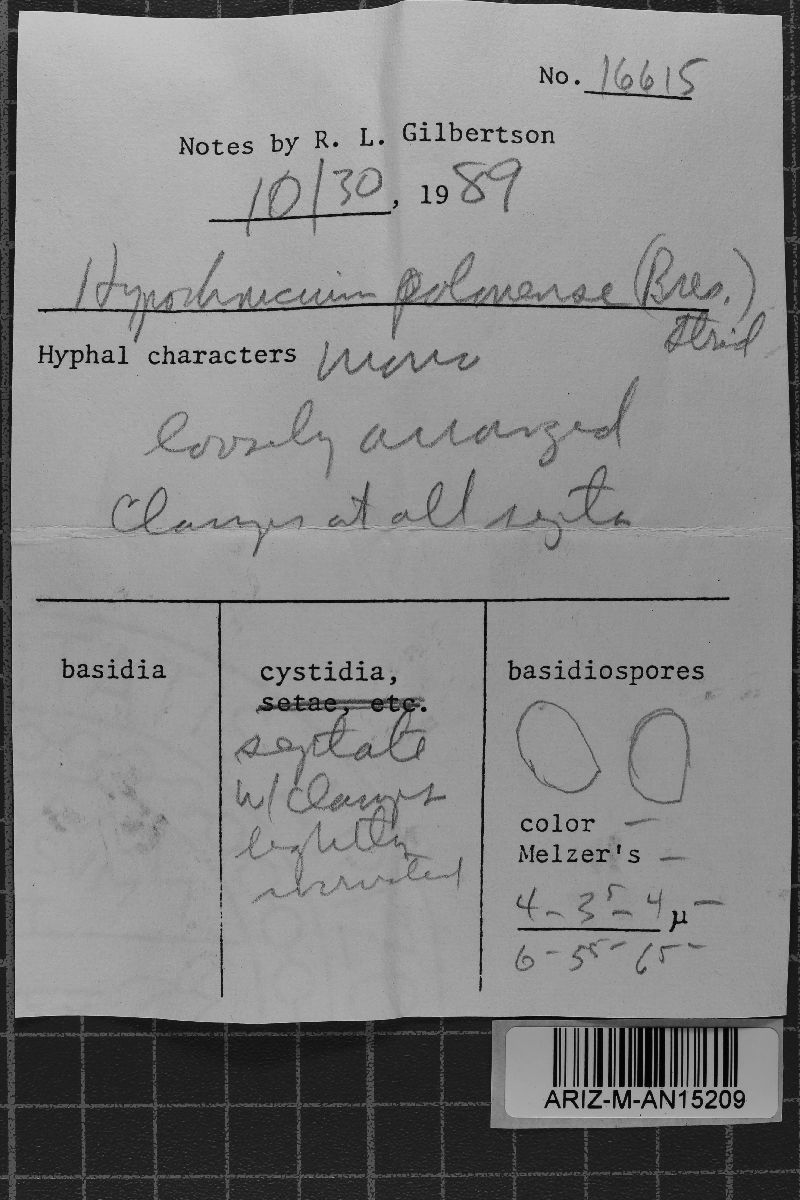 No. 16615
Notes by R. L. Gilbertson
10/30, 1989
Hypochnicium polonense (Bres.)
Strid
Hyphal characters mono
loosely arranged
Clamps at all septa
basidia
cystidia,
setae, etc.
septate
w/ clamps
lightly
incrusted
basidiospores
color —
Melzer's —
4 – 3⁵ – 4 µ –
6 – 5⁵ – 6⁵ –
ARIZ-M-AN15209